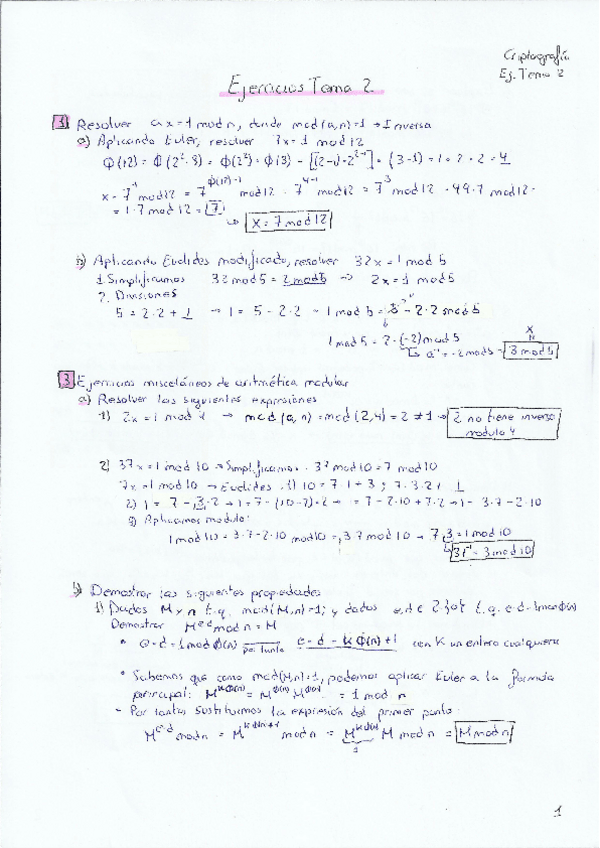 Criptografía
Ej. Tema 2
Ejercicios Tema 2
1 Resolver ax=1 mod n, donde mcd(a,n)=1 → Inversa
a) Aplicando Euler, resolver 7x=1 mod 12
Φ(12) = Φ(2²·3) = Φ(2²)·Φ(3) = [(2-1)·2²⁻¹]·(3-1) = 1·2·2=4
x = 7⁻¹ mod 12 = 7^Φ(12)-1 mod 12 = 7⁴⁻¹ mod 12 = 7³ mod 12 = 49·7 mod 12 =
= 1·7 mod 12 = 7
↳ x = 7 mod 12
b) Aplicando Euclides modificado, resolver 32x=1 mod 5
1. Simplificamos 32 mod 5 = 2 mod 5 → 2x=1 mod 5
2. Divisiones
5 = 2·2 + 1 → 1 = 5 - 2·2 = 1 mod 5 = 5 - 2·2 mod 5
1 mod 5 = 2·(-2) mod 5
↳ a⁻¹ = -2 mod 5 = 3 mod 5
3 Ejercicios misceláneos de aritmética modular
a) Resolver las siguientes expresiones
1) 2x=1 mod 4 → mcd(a,n) = mcd(2,4) = 2 ≠ 1 → 2 no tiene inverso
modulo 4
2) 37x=1 mod 10 → Simplificamos · 37 mod 10 = 7 mod 10
7x=1 mod 10 → Euclides · 1) 10 = 7·1 + 3 ; 7 = 3·2 + 1
2) 1 = 7 - 3·2 → 1 = 7 - (10-7)·2 → 1 = 7 - 2·10 + 7·2 → 1 = 3·7 - 2·10
3) Aplicamos modulo:
1 mod 10 = 3·7 - 2·10 mod 10 = 3·7 mod 10 → 7·3 = 1 mod 10
↳ 37⁻¹ = 3 mod 10
b) Demostrar las siguientes propiedades
1) Dados M y n t.q. mcd(M,n)=1; y dados e,d ∈ Z-{0} t.q. e·d=1 mod Φ(n)
Demostrar M^e·d mod n = M
• e·d = 1 mod Φ(n) por tanto e·d = kΦ(n)+1 con K un entero cualquiera
• Sabemos que como mcd(M,n)=1, podemos aplicar Euler a la formula
principal: M^kΦ(n) = M^Φ(n) M^Φ(n) = 1 mod n
- Por tanto sustituimos la expresión del primer punto:
M^e·d mod n = M^kΦ(n)+1 mod n = M^kΦ(n) M mod n = M mod n
1
1